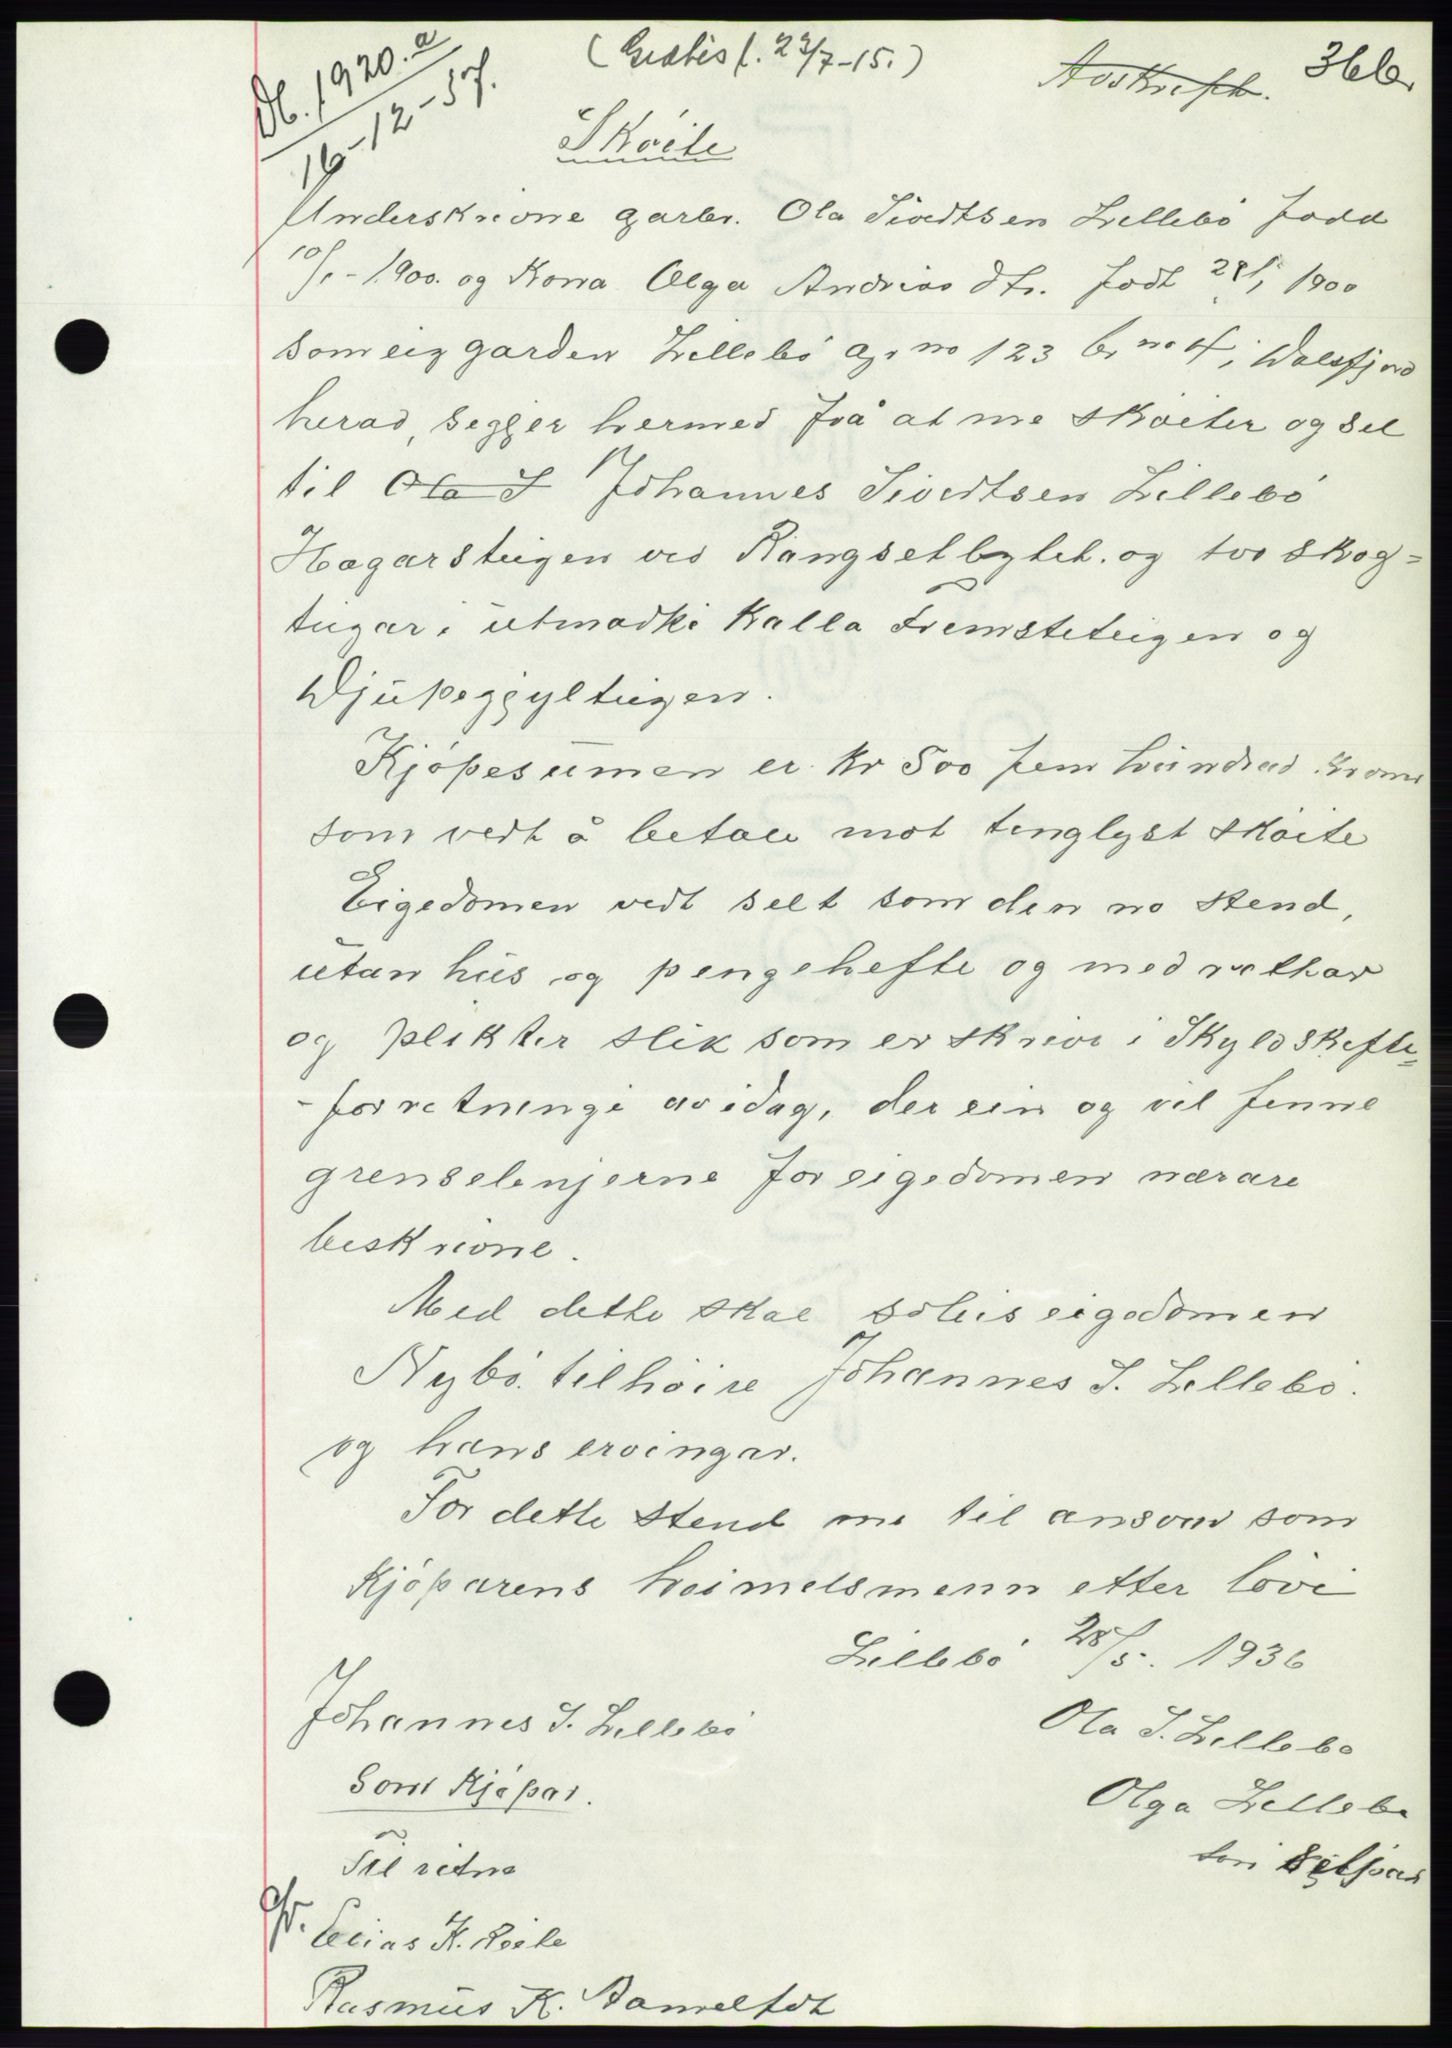 Db. 1920.a
16-12-37.
(Gratis f. 23/7-15.)
Avskrift.
Skøite
Underskrivne garbr. Ola Sivertsen Lillebö född
10/1-1900. og Kona Olga Andreasdtr. född 1900
som eig garden Lillebö gr no 123 br no 4, i Dalsfjord
herad, segjer hermed frå at me skøiter og sel
til Ola S Johannes Sivertsen Lillebö
Hagarsteigen ved Rangsetbytet. og tvo skog-
teigar i utmarki kalla Fremsteteigen og
Djupegylteigen.
Kjöpesummen er kr 500 fem hundrad kroner
som vert å betale mot tinglyst skøite
Eigedomen vert selt som den no stend,
utan hus og pengehefte og med rettar
og plikter slik som er skrive i Skyldskifte-
-forretningi av idag, der ein og vil finne
grenselinjerne for eigedomen nærare
beskrivne.
Med dette skal soleis eigedomen
Nybö. tilhöire Johannes S. Lillebö.
og hans ervingar.
For dette stend me til ansvar som
Kjöparens heimelsmenn etter lovi
Lillebö 28/5. 1936
Johannes S. Lillebö
Ola S. Lillebö
Som Kjöpar.
Olga Lillebö
som seljar
Til vitne
Elias K.
Rasmus K.